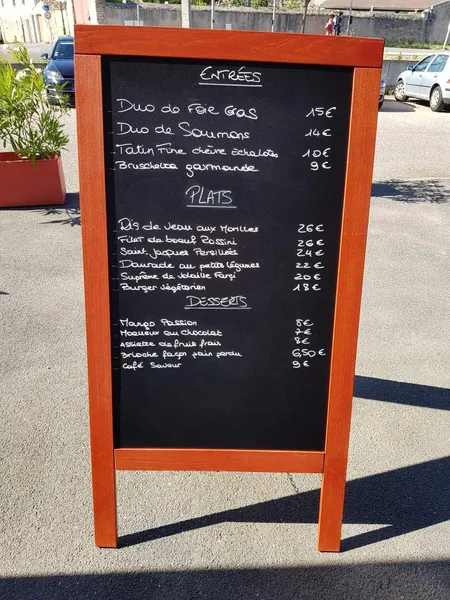 ENTRÉES
Duo de Foie Gras 15€
Duo de Saumons 14€
Tatin Fine chèvre Echalotes 10€
Bruschetta gourmande 9€
PLATS
Ris de veau aux Morilles 26€
Filet de boeuf Rossini 26€
Saint Jacques Persillées 24€
Daurade au petits légumes 22€
Suprême de Volaille Farçi 20€
Burger végétarien 18€
DESSERTS
Mango Passion 8€
Moelleux au Chocolat 7€
Assiette de fruits frais 8€
Brioche façon pain perdu 6,50€
Café Saveur 9€